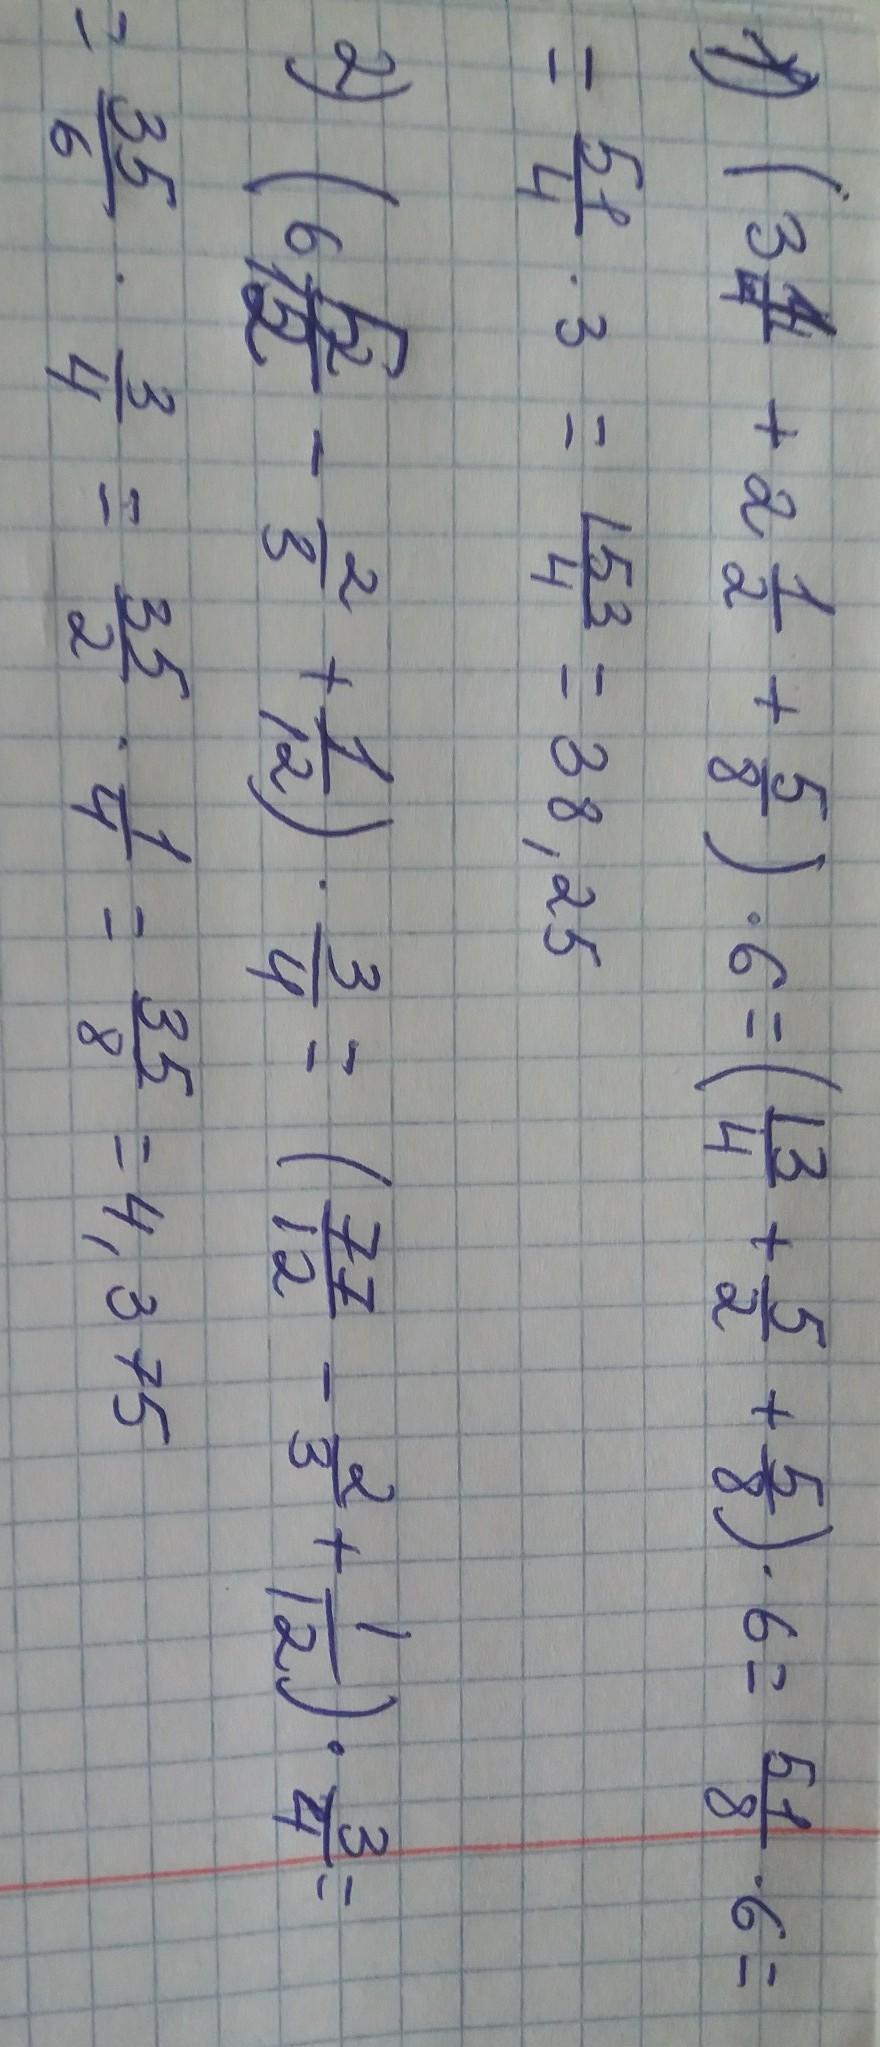 1) (3 1/4 + 2 1/2 + 5/8) · 6 = (13/4 + 5/2 + 5/8) · 6 = 51/8 · 6 =
= 51/4 · 3 = 153/4 = 38,25
2) (6 5/12 - 2/3 + 1/12) · 3/4 = (77/12 - 2/3 + 1/12) · 3/4 =
= 35/6 · 3/4 = 35/2 · 1/4 = 35/8 = 4,375